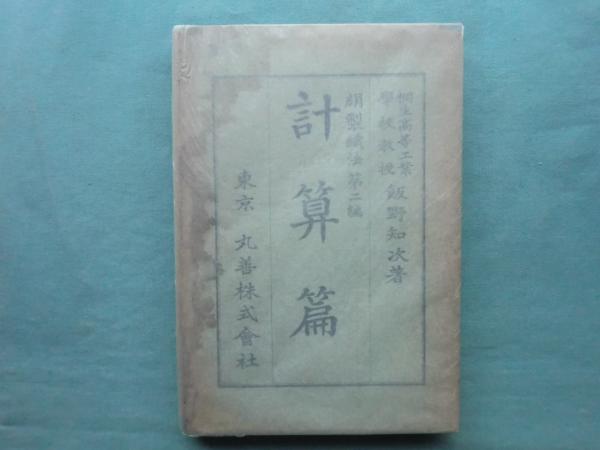 桐生高等工業
學校教授
飯野知次著
絹製織法第二編
計算篇
東京 丸善株式會社